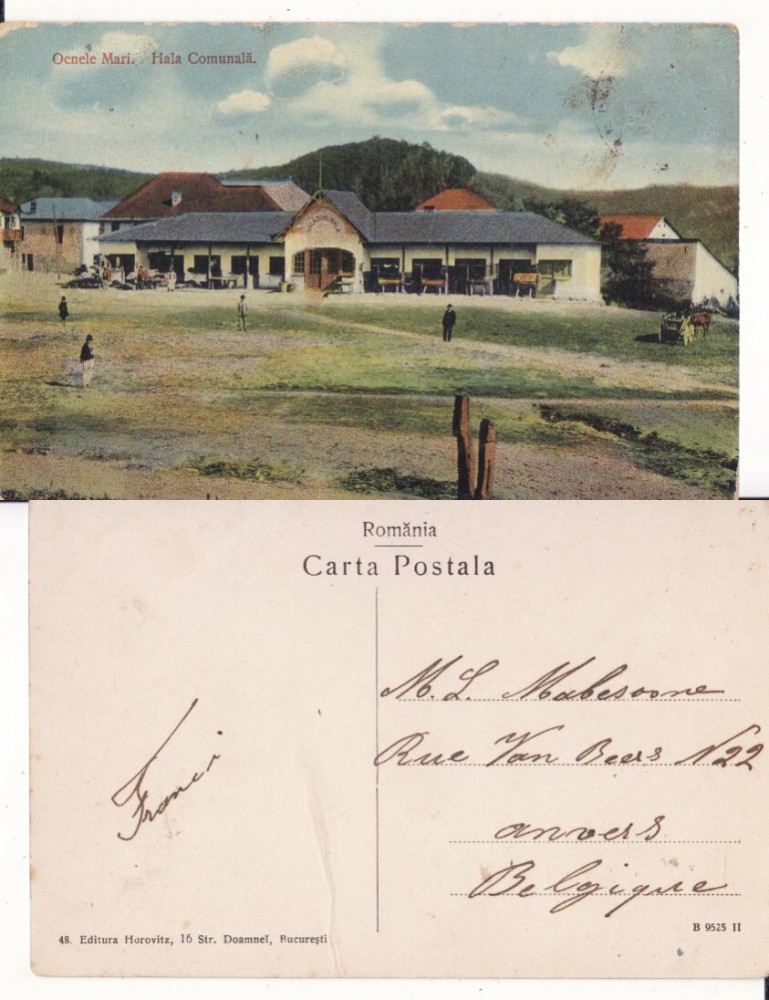 Ocnele Mari. Hala Comunală.
România
Carta Postala
M. L. Mabesoone
Rue Van Beers N 22
anvers
Belgique
Franci
48. Editura Horovitz, 16 Str. Doamneĭ, Bucureşti
B 9525 II